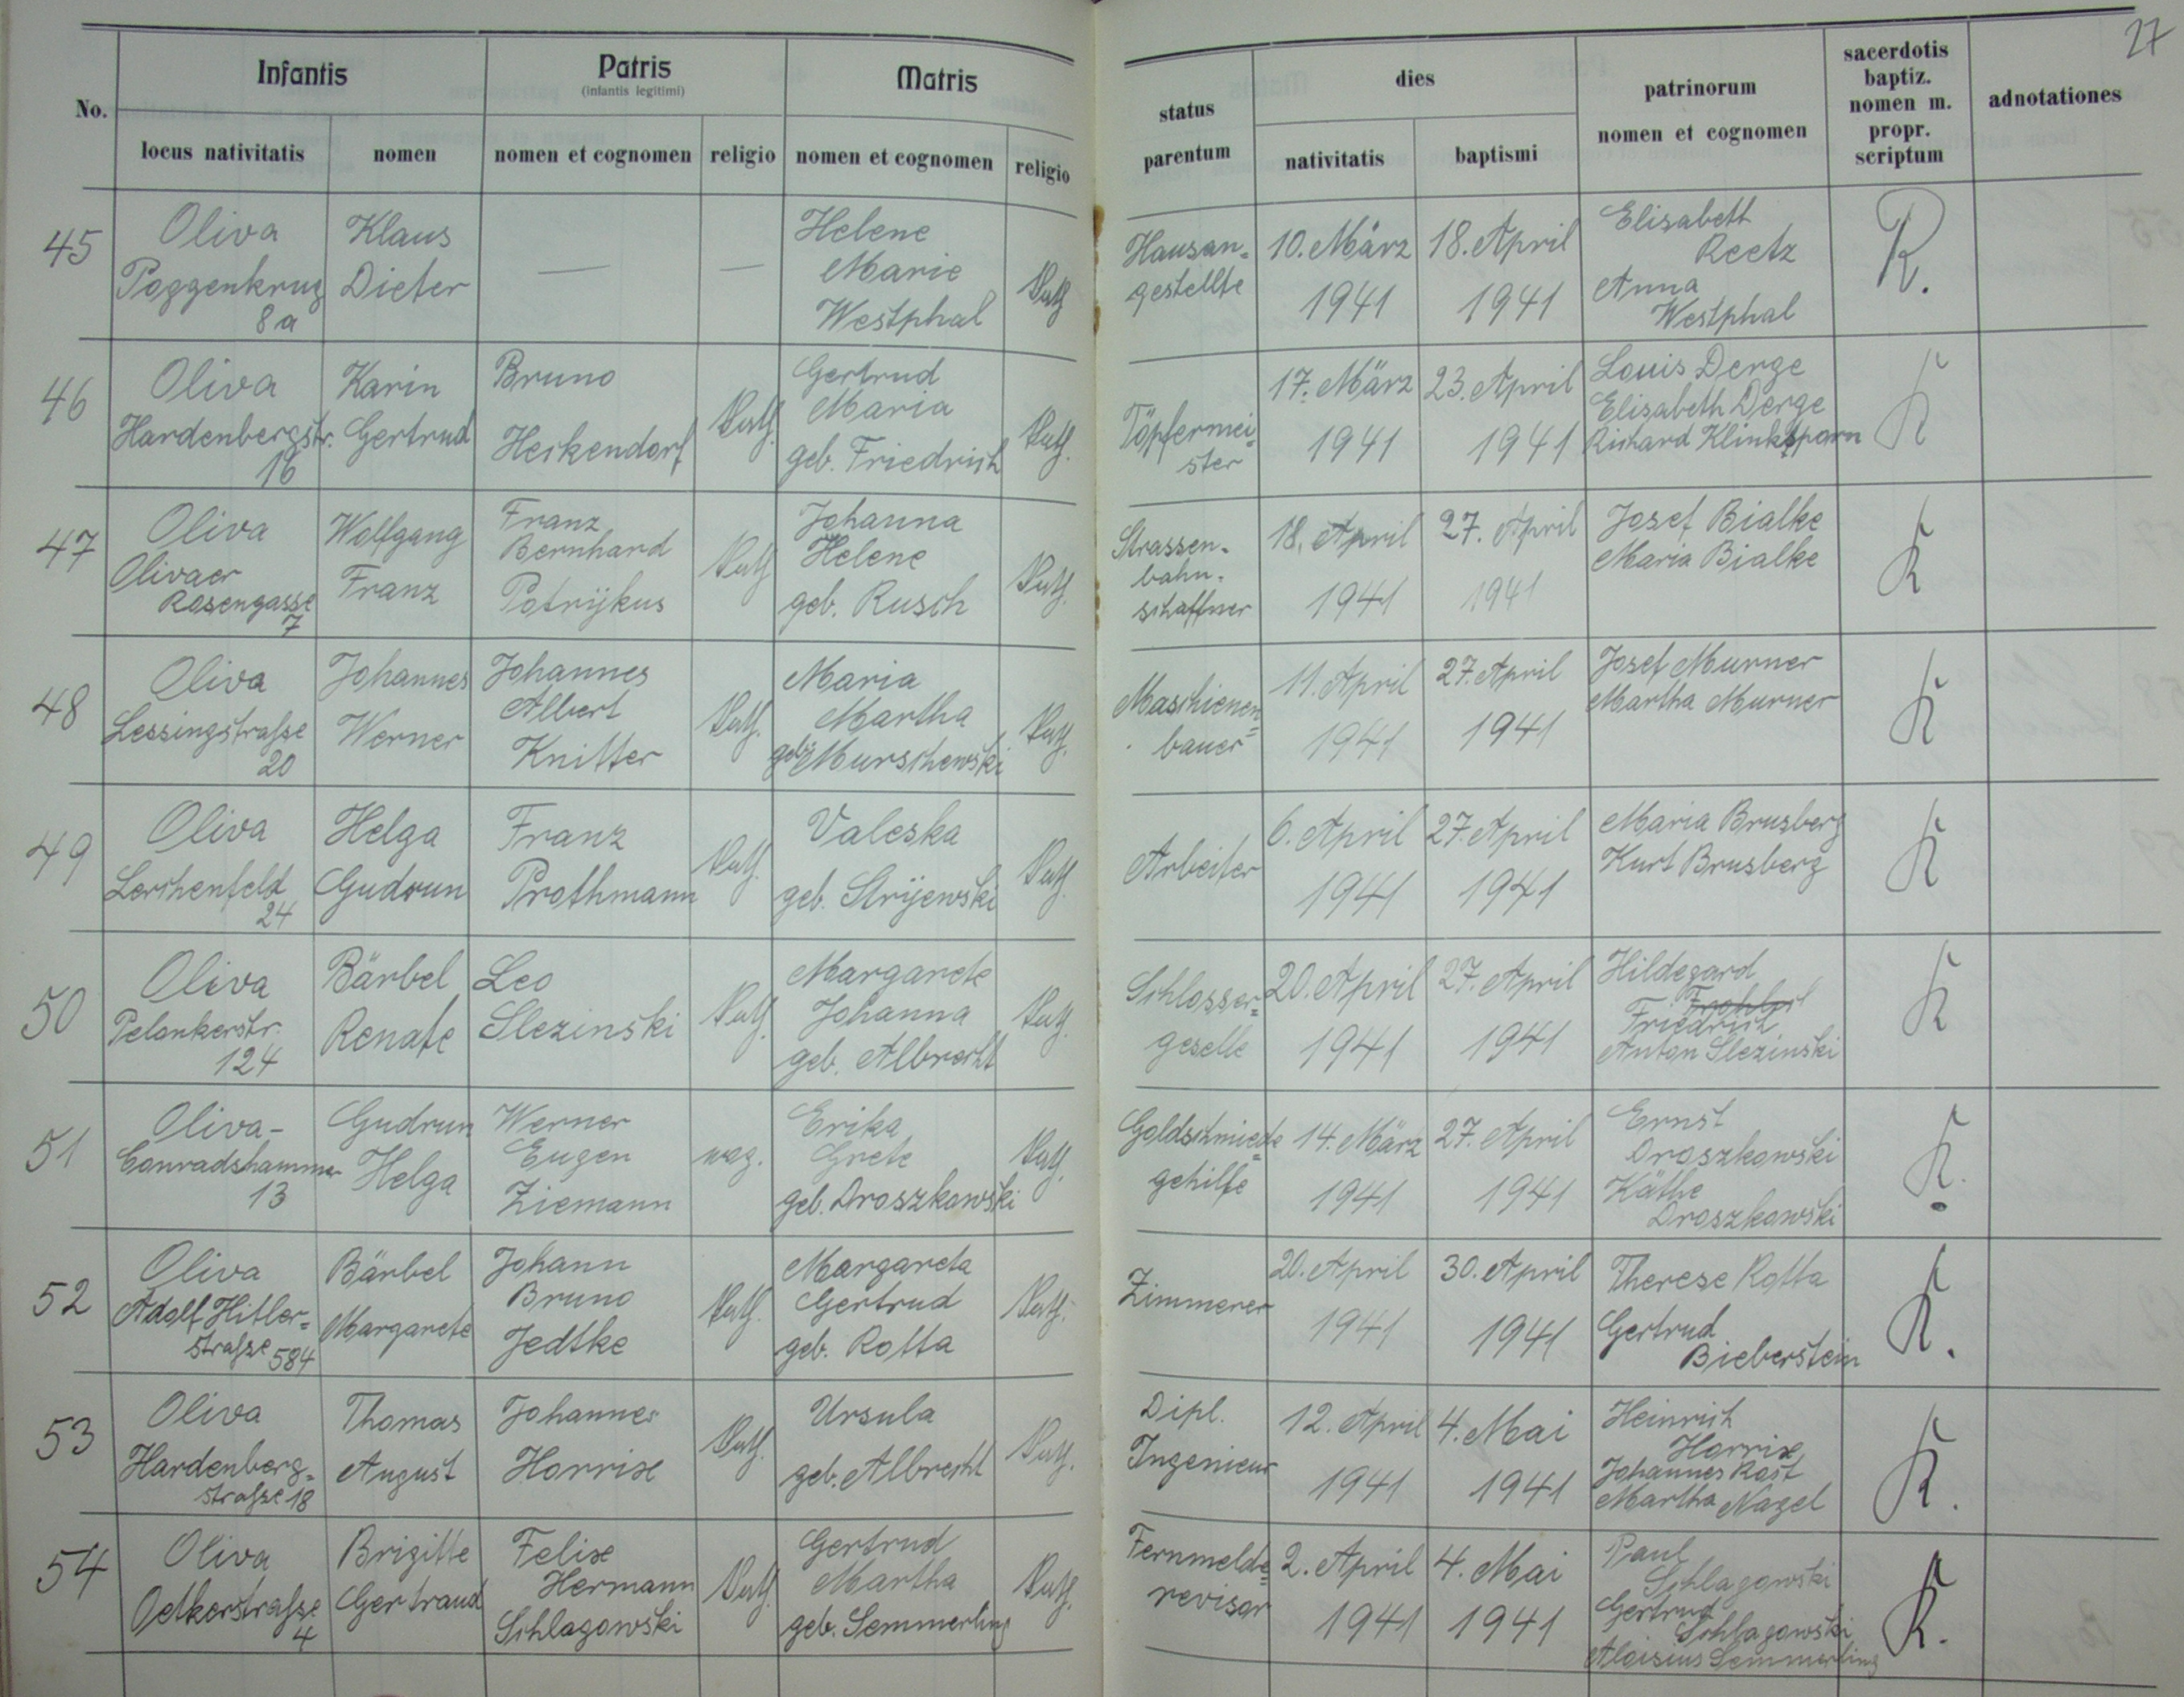 27
Infantis
Patris
(infantis legitimi)
Matris
status
parentum
dies
patrinorum
nomen et cognomen
sacerdotis
baptiz.
nomen m.
propr.
scriptum
adnotationes
No.
locus nativitatis
nomen
nomen et cognomen
religio
nomen et cognomen
religio
nativitatis
baptismi
45
Oliva
Poggenkrug
8a
Klaus
Dieter
—
—
Helene
Marie
Westphal
kath
Hausan-
gestellte
10. März
1941
18. April
1941
Elisabeth
Reetz
Anna
Westphal
R.
46
Oliva
Hardenbergstr.
16
Karin
Gertrud
Bruno
Heikendorf
kath.
Gertrud
Maria
geb. Friedrich
kath.
Töpfermei-
ster
17. März
1941
23. April
1941
Louis Derge
Elisabeth Derge
Richard Klinksporn
K
47
Oliva
Olivaer
Rosengasse
7
Wolfgang
Franz
Franz
Bernhard
Potrijkus
kath
Johanna
Helene
geb. Rusch
kath.
Strassen-
bahn-
schaffner
18. April
1941
27. April
1941
Josef Bialke
Maria Bialke
K
48
Oliva
Lessingstraße
20
Johannes
Werner
Johannes
Albert
Knitter
kath.
Maria
Martha
geb. Murschewski
kath.
Maschienen-
bauer
11. April
1941
27. April
1941
Josef Murner
Martha Murner
K
49
Oliva
Lerchenfeld
24
Helga
Gudrun
Franz
Prothmann
kath.
Valeska
geb. Strijewski
kath.
Arbeiter
6. April
1941
27. April
1941
Maria Brusberg
Kurt Brusberg
K
50
Oliva
Pelonkerstr.
124
Bärbel
Renate
Leo
Slezinski
kath.
Margarete
Johanna
geb. Albrecht
kath.
Schlosser-
geselle
20. April
1941
27. April
1941
Hildegard
Friedrich
Anton Slezinski
K
51
Oliva-
Conradshammer
13
Gudrun
Helga
Werner
Eugen
Ziemann
Erika
Grete
geb. Droszkowski
kath.
Goldschmiede-
gehilfe
14. März
1941
27. April
1941
Ernst
Droszkowski
Käthe
Droszkowski
K.
52
Oliva
Adolf Hitler-
straße 584
Bärbel
Margarete
Johann
Bruno
Jedtke
kath.
Margareta
Gertrud
geb. Rotta
kath.
Zimmerer
20. April
1941
30. April
1941
Therese Rotta
Gertrud
Bieberstein
K.
53
Oliva
Hardenberg-
straße 18
Thomas
August
Johannes
Horrix
kath.
Ursula
geb. Albrecht
kath.
Dipl.
Ingenieur
12. April
1941
4. Mai
1941
Heinrich
Horrix
Johannes Rast
Martha Nagel
K.
54
Oliva
Oelkerstraße
4
Brigitte
Gertraud
Felix
Hermann
Schlagowski
kath.
Gertrud
Martha
geb. Semmerling
kath.
Fernmelde-
revisor
2. April
1941
4. Mai
1941
Paul
Schlagowski
Gertrud
Schlagowski
Aloisius Semmerling
K.